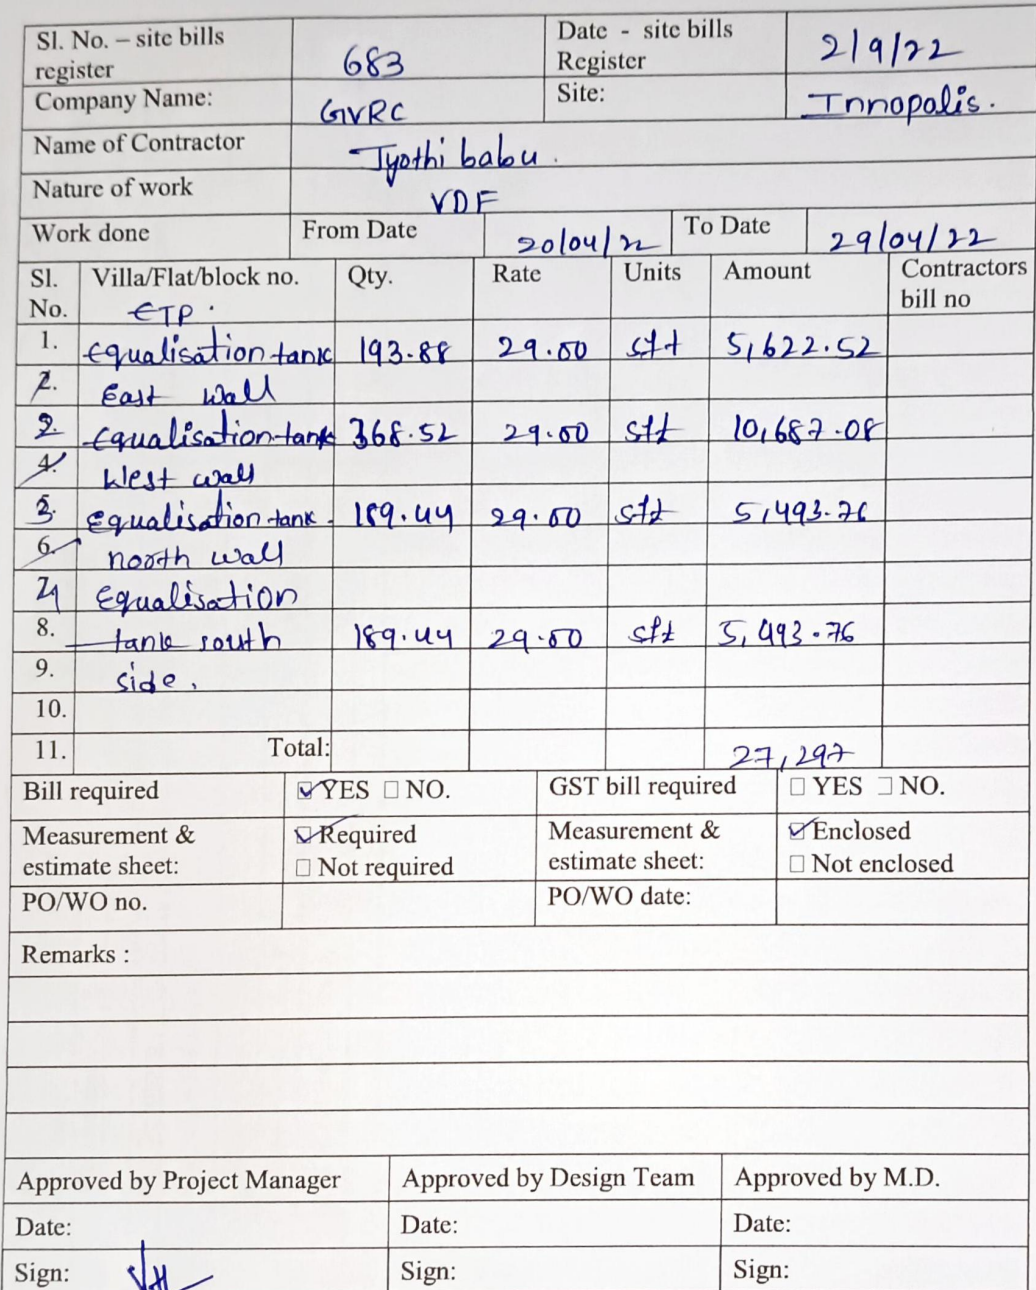 Sl. No. – site bills register 683 Date - site bills Register 2/9/22
Company Name: GVRC Site: Innopolis.
Name of Contractor Jyothi babu.
Nature of work VDF
Work done From Date 20/04/22 To Date 29/04/22
Sl. No. Villa/Flat/block no. Qty. Rate Units Amount Contractors bill no
ETP.
1. Equalisation tank 193.88 29.00 sft 5,622.52
2. East wall
2. Equalisation tank 368.52 29.00 sft 10,687.08
4. West wall
3. Equalisation tank. 189.44 29.00 sft 5,493.76
6. north wall
4 Equalisation
8. tank south 189.44 29.00 sft 5,493.76
9. side.
10.
11. Total: 27,297
Bill required YES NO. GST bill required YES NO.
Measurement & estimate sheet: Required Measurement & estimate sheet: Enclosed
Not required Not enclosed
PO/WO no. PO/WO date:
Remarks :
Approved by Project Manager Approved by Design Team Approved by M.D.
Date: Date: Date:
Sign: Sign: Sign: